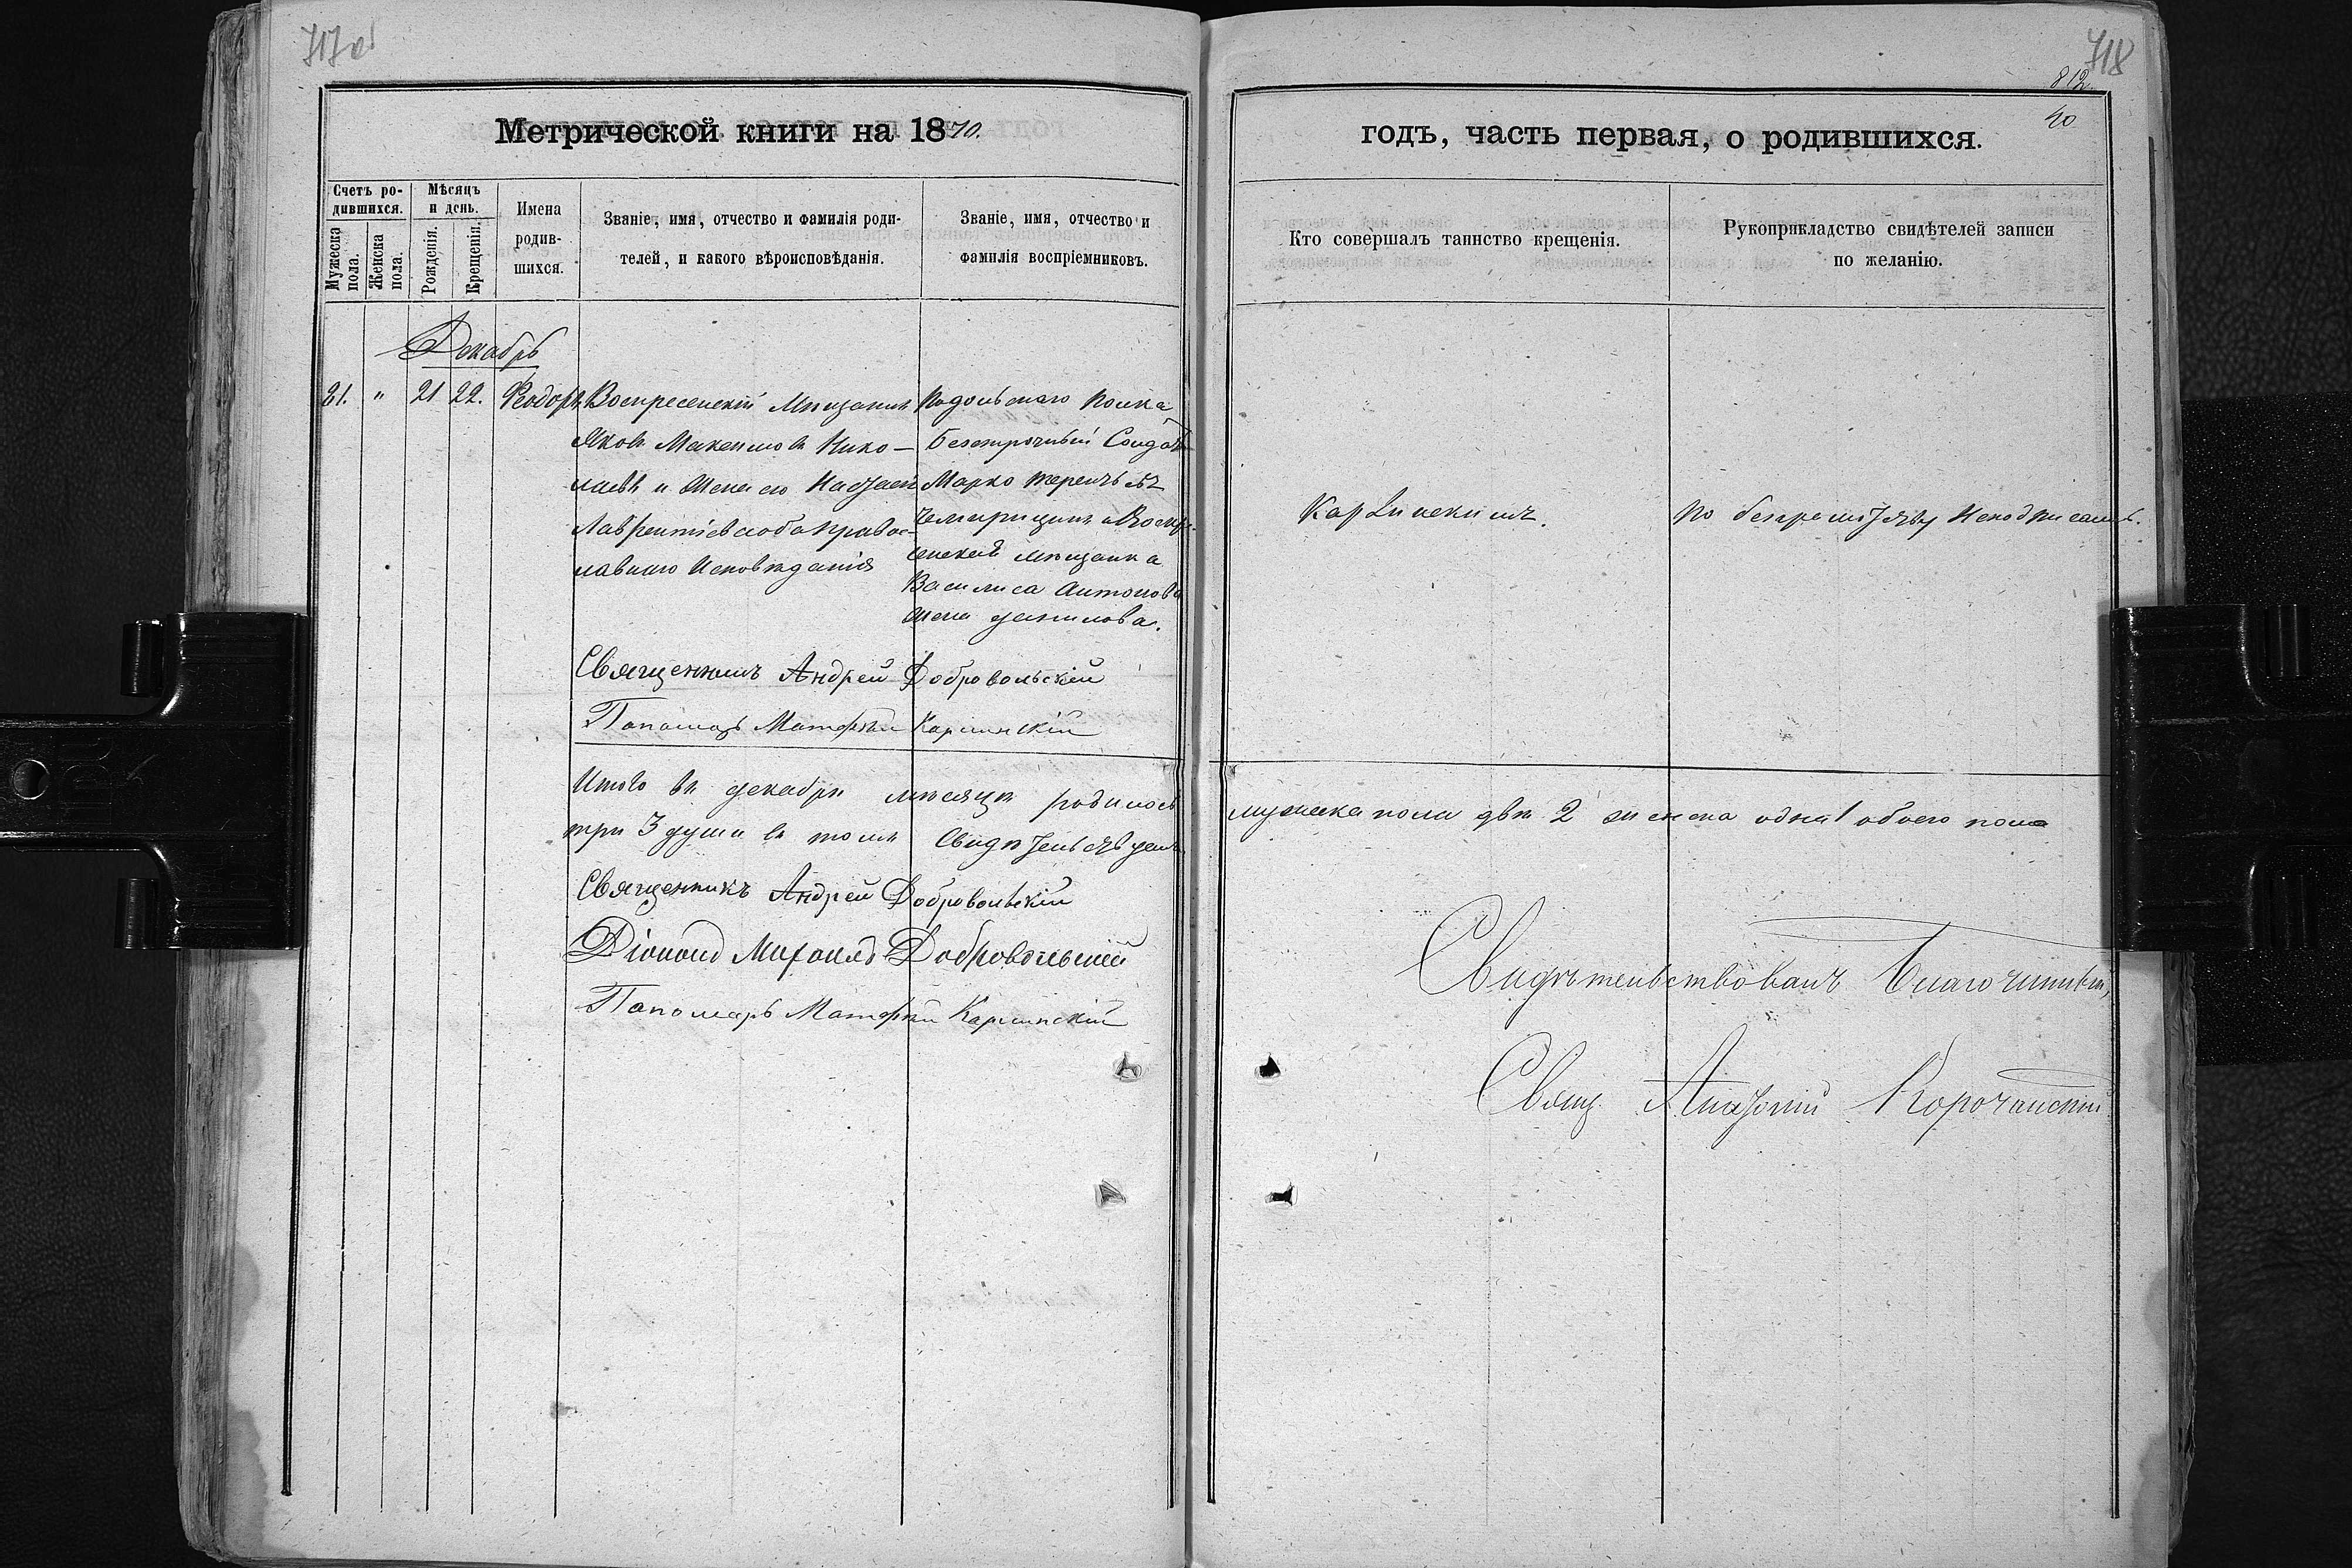 718
812.
40
Метрической книги на 1870.
годъ, часть первая, о родившихся.
Счетъ ро-
дившихся.
Мужеска
пола.
Женска
пола.
Мѣсяцъ
и день.
Рожденія.
Крещенія.
Имена
родив-
шихся.
Званіе, имя, отчество и фамилія роди-
телей, и какого вѣроисповѣданія.
Званіе, имя, отчество и
фамилія воспріемниковъ.
Кто совершалъ таинство крещенія.
Рукоприкладство свидѣтелей записи
по желанію.
Декабрь
21. " 21 22. Феодоръ
Воскресенскій Мѣщанинъ
Яковъ Максимовъ Нико-
лаевъ и Жена его
Лаврентіева оба Правос-
лавнаго Исповѣданія
Подольскаго Полка
Безсрочный Солдатъ
Марко Терентьевъ
мѣщанка
Василиса Антонова
жена Данилова.
Священникъ Андрей Добровольскій
Пономарь Матфѣй Карпинскій
Карпинскимъ.
По безграмотству Неподписались.
Итого въ декабрѣ мѣсяцѣ родилось мужеска пола два 2 женска одна 1 обоего пола
три 3 души въ томъ Свидѣтельствуемъ
Священникъ Андрей Добровольскій
Діаконъ Михаилъ Добровольскій
Пономарь Матфѣй Карпинскій
Свидѣтельствовалъ Благочинный,
Свящ. Анатолій Корочанскій